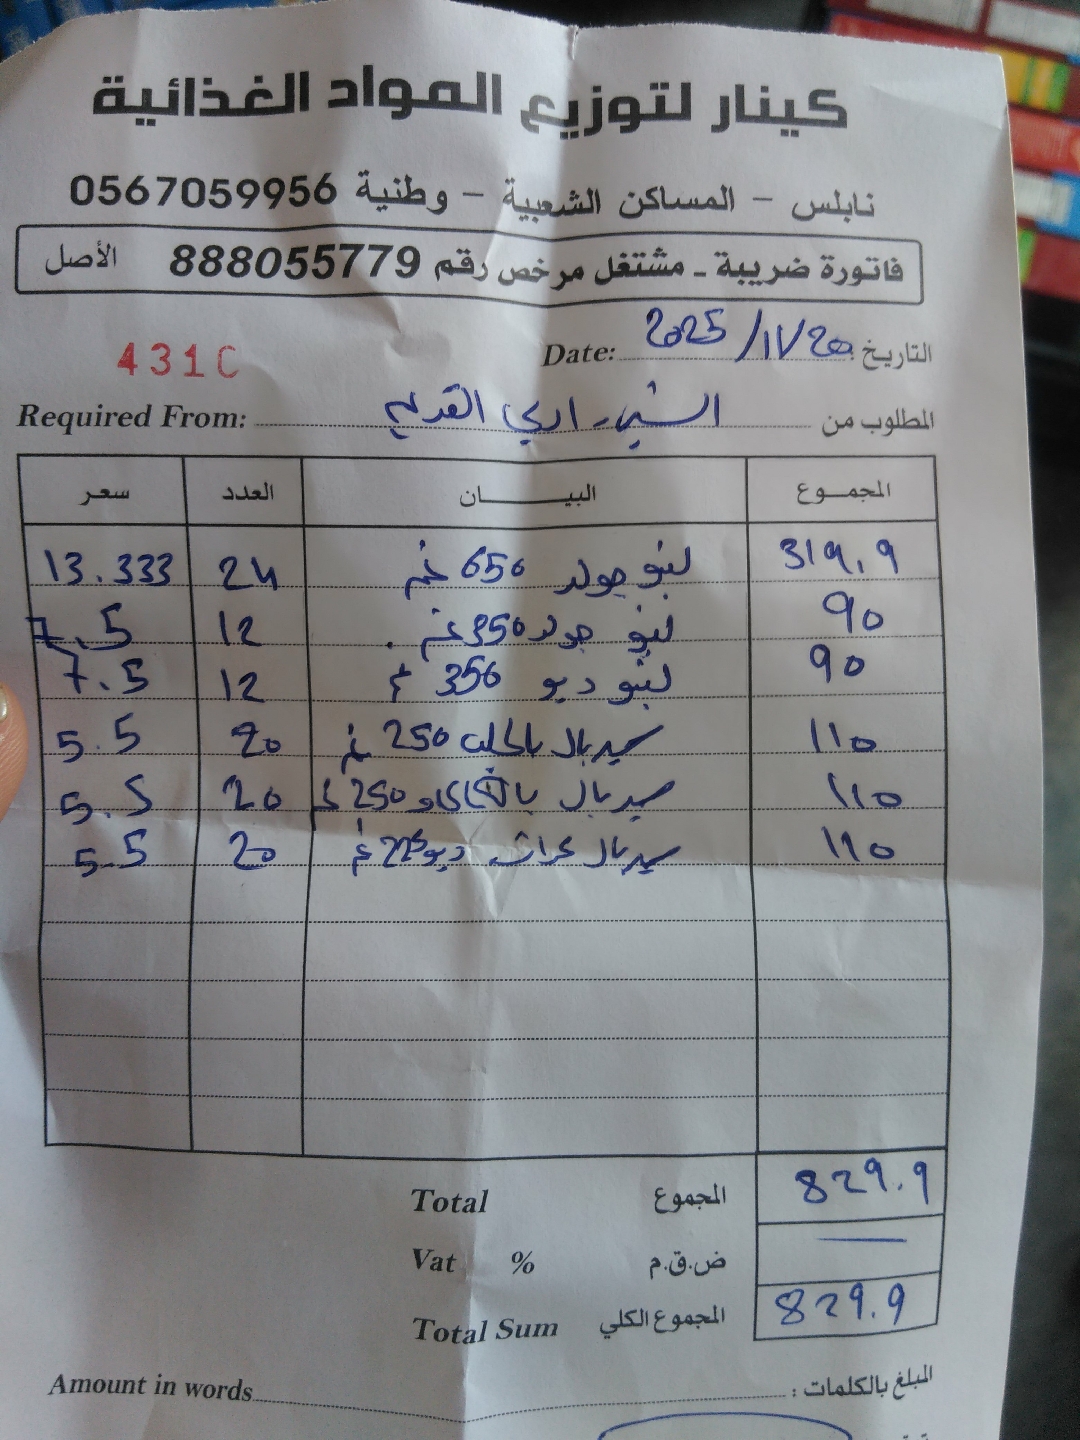 كينار لتوزيع المواد الغذائية
نابلس - المساكن الشعبية - وطنية 0567059956
فاتورة ضريبة - مشتغل مرخص رقم 888055779 الأصل
431C
Date: 2025/11/20 التاريخ
Required From: القديم المطلوب من
المجموع البيــــان العدد سعر
319.9 لينو جولد 650 غم 24 13.333
90 لينو جولد 350 غم 12 7.5
90 لينو ديو 350 غ 12 7.5
110 سيريال بالحليب 250 غ 20 5.5
110 سيريال بالكاكاو 250 غ 20 5.5
110 سيريال ديو 225 غ 20 5.5
Total المجموع 829.9
Vat % ض.ق.م —
Total Sum المجموع الكلي 829.9
Amount in words المبلغ بالكلمات :